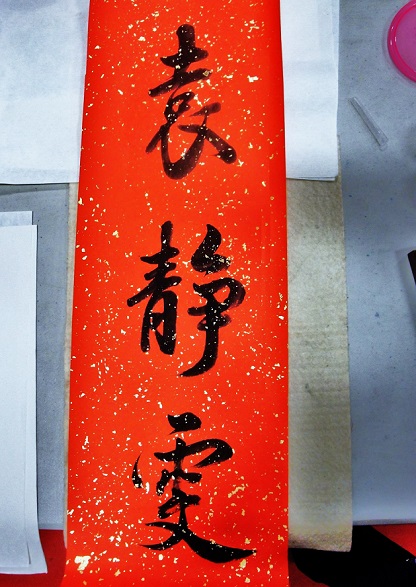 袁静雯